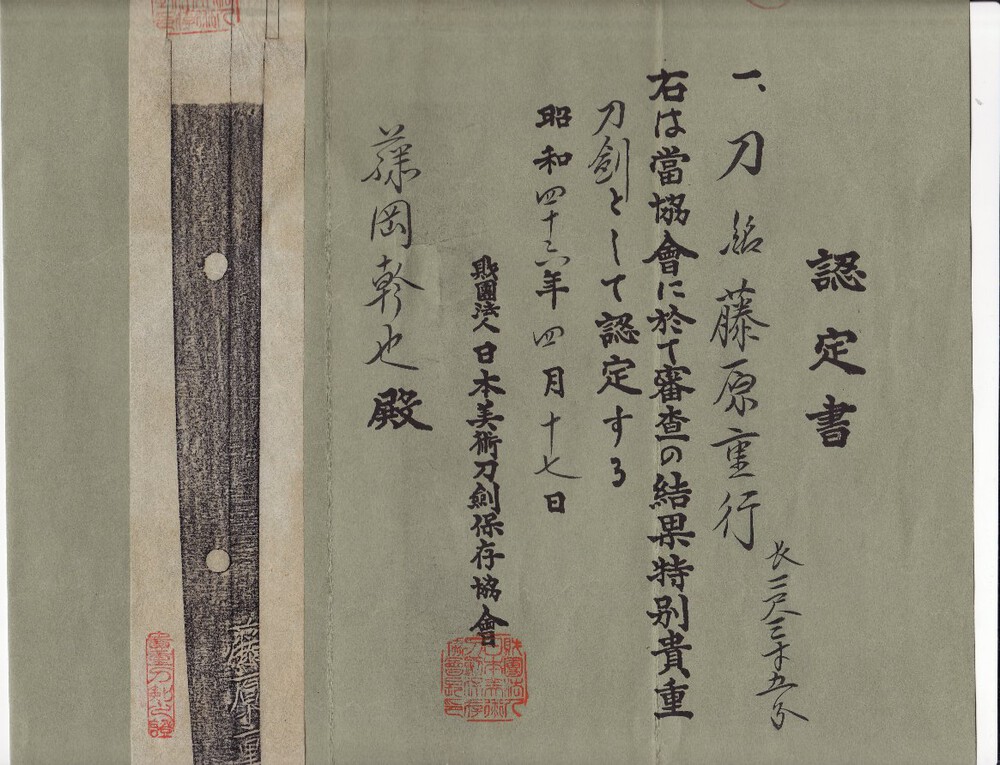 認定書
一、刀 銘 藤原重行
長二尺三寸五分
右は當協會に於て審査の結果特別貴重
刀劍として認定する
昭和四十六年四月十七日
財團法人日本美術刀劍保存協會
藤岡幹也殿
藤原重